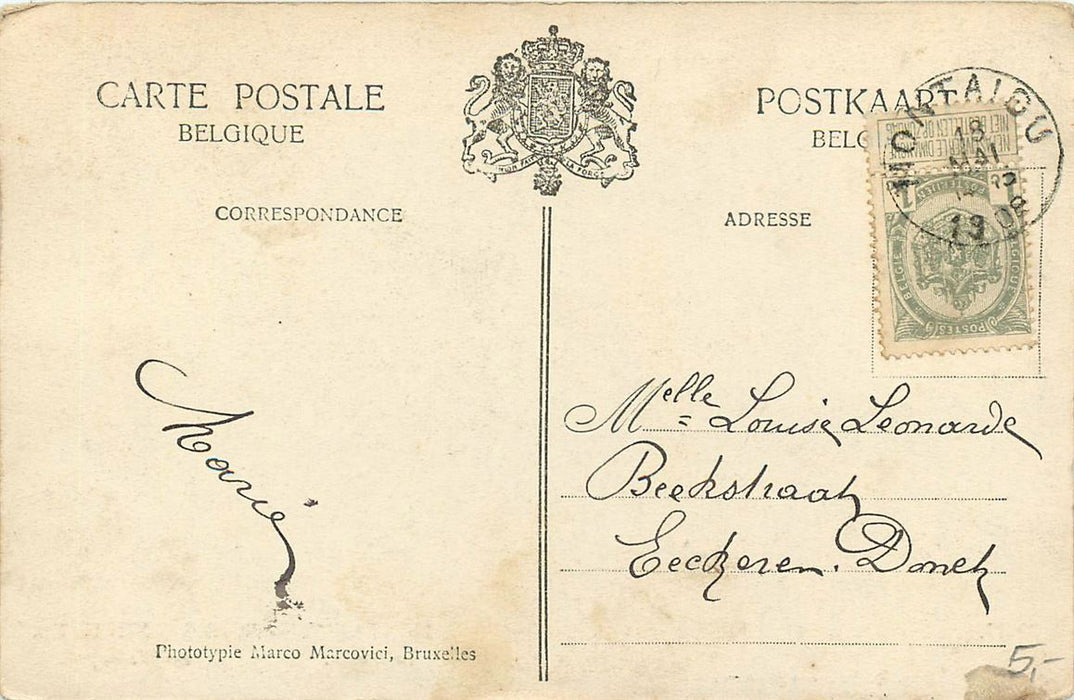 CARTE POSTALE
BELGIQUE
CORRESPONDANCE
Marie
Phototypie Marco Marcovici, Bruxelles
POSTKAART
BELG
ADRESSE
MONTAIGU
18
MAI
1908
NIET BESTELLEN OP ZONDAG
NE PAS LIVRER LE DIMANCHE
1 1
POSTES
BELGIE
BELGIQUE
Melle Louise Leonarde
Beekstraat
Eeckeren. Donck
5,-